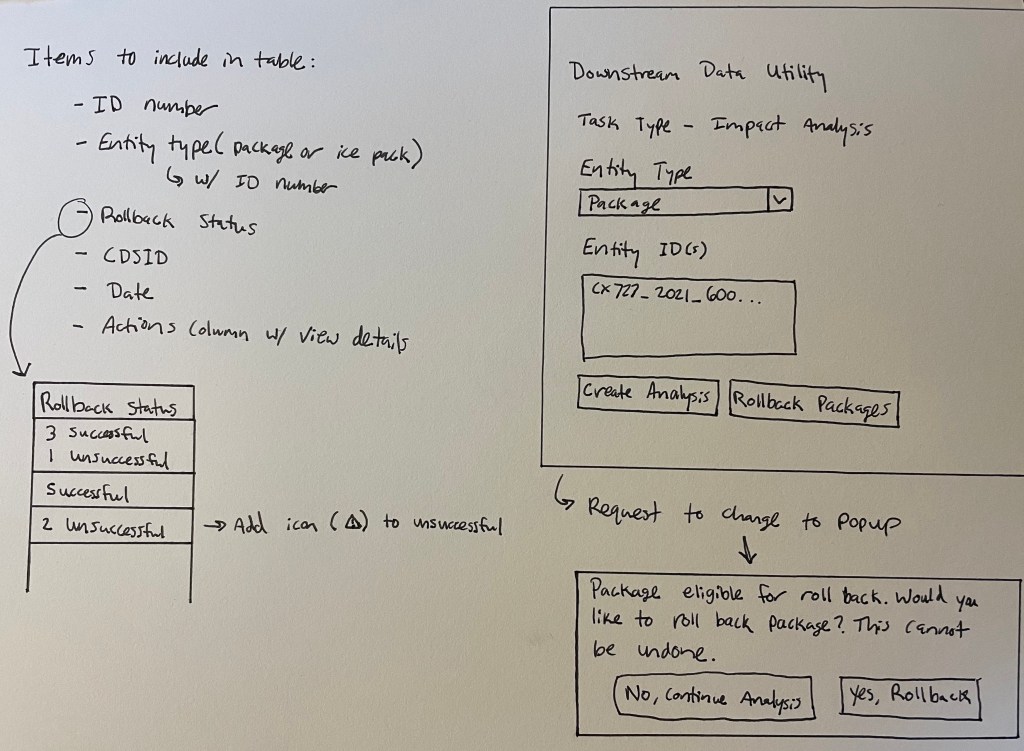 Items to include in table:
- ID number
- Entity type (package or ice pack)
↳ w/ ID number
- Rollback Status
- CDSID
- Date
- Actions Column w/ view details
Rollback Status
3 Successful
1 unsuccessful
Successful
2 Unsuccessful
→ Add icon (⚠) to unsuccessful
Downstream Data Utility
Task Type - Impact Analysis
Entity Type
Package
Entity ID(s)
CX727_2021_600...
Create Analysis
Rollback Packages
↳ Request to change to popup
Package eligible for roll back. Would you
like to roll back package? This cannot
be undone.
No, Continue Analysis
Yes, Rollback